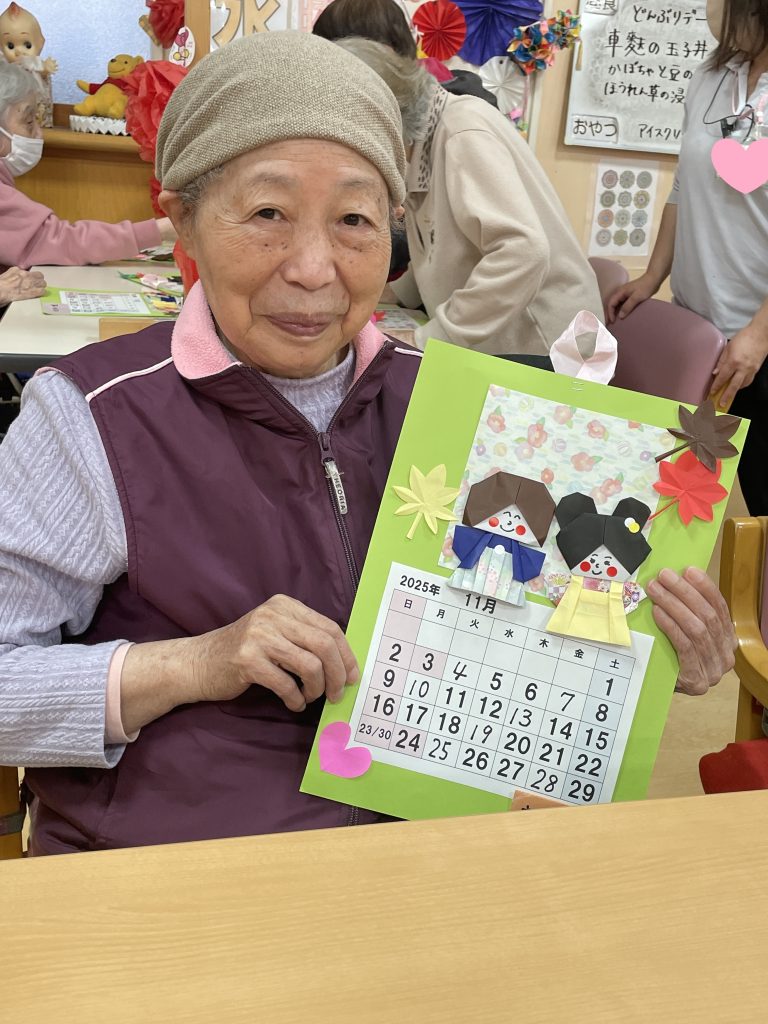 水
昼食
どんぶりデー
車麩の玉子丼
かぼちゃと豆の
ほうれん草の浸
おやつ
アイスクリ
THEORIA
2025年 11月
日 月 火 水 木 金 土
1
2 3 4 5 6 7 8
9 10 11 12 13 14 15
16 17 18 19 20 21 22
23/30 24 25 26 27 28 29